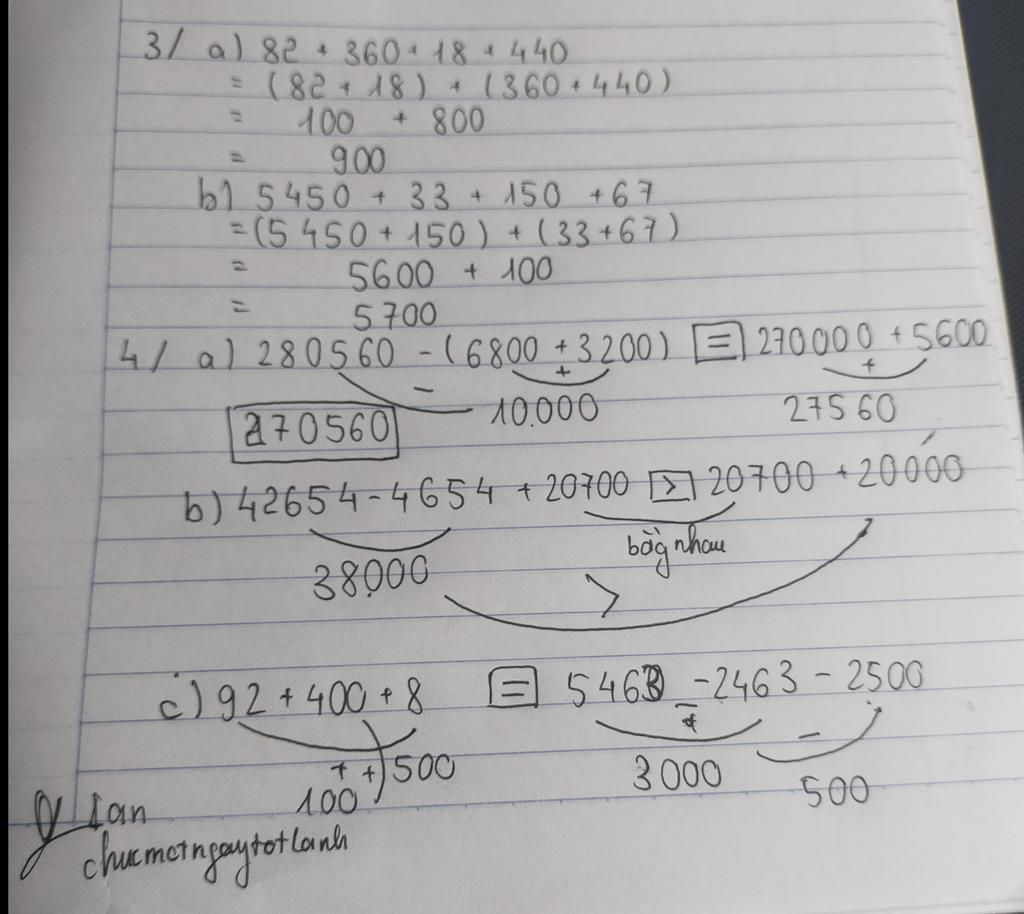 3/ a) 82 + 360 + 18 + 440
= (82 + 18) + (360 + 440)
= 100 + 800
= 900
b) 5450 + 33 + 150 + 67
= (5450 + 150) + (33 + 67)
= 5600 + 100
= 5700
4/ a) 280560 - (6800 + 3200) = 270000 + 5600
- + +
270560 10.000 27560
b) 42654 - 4654 + 20700 > 20700 + 20000
bằg nhau
38.000 >
c) 92 + 400 + 8 = 5463 - 2463 - 2500
+ +) 500 3000 -
100 500
lan
chucmotngaytotlanh